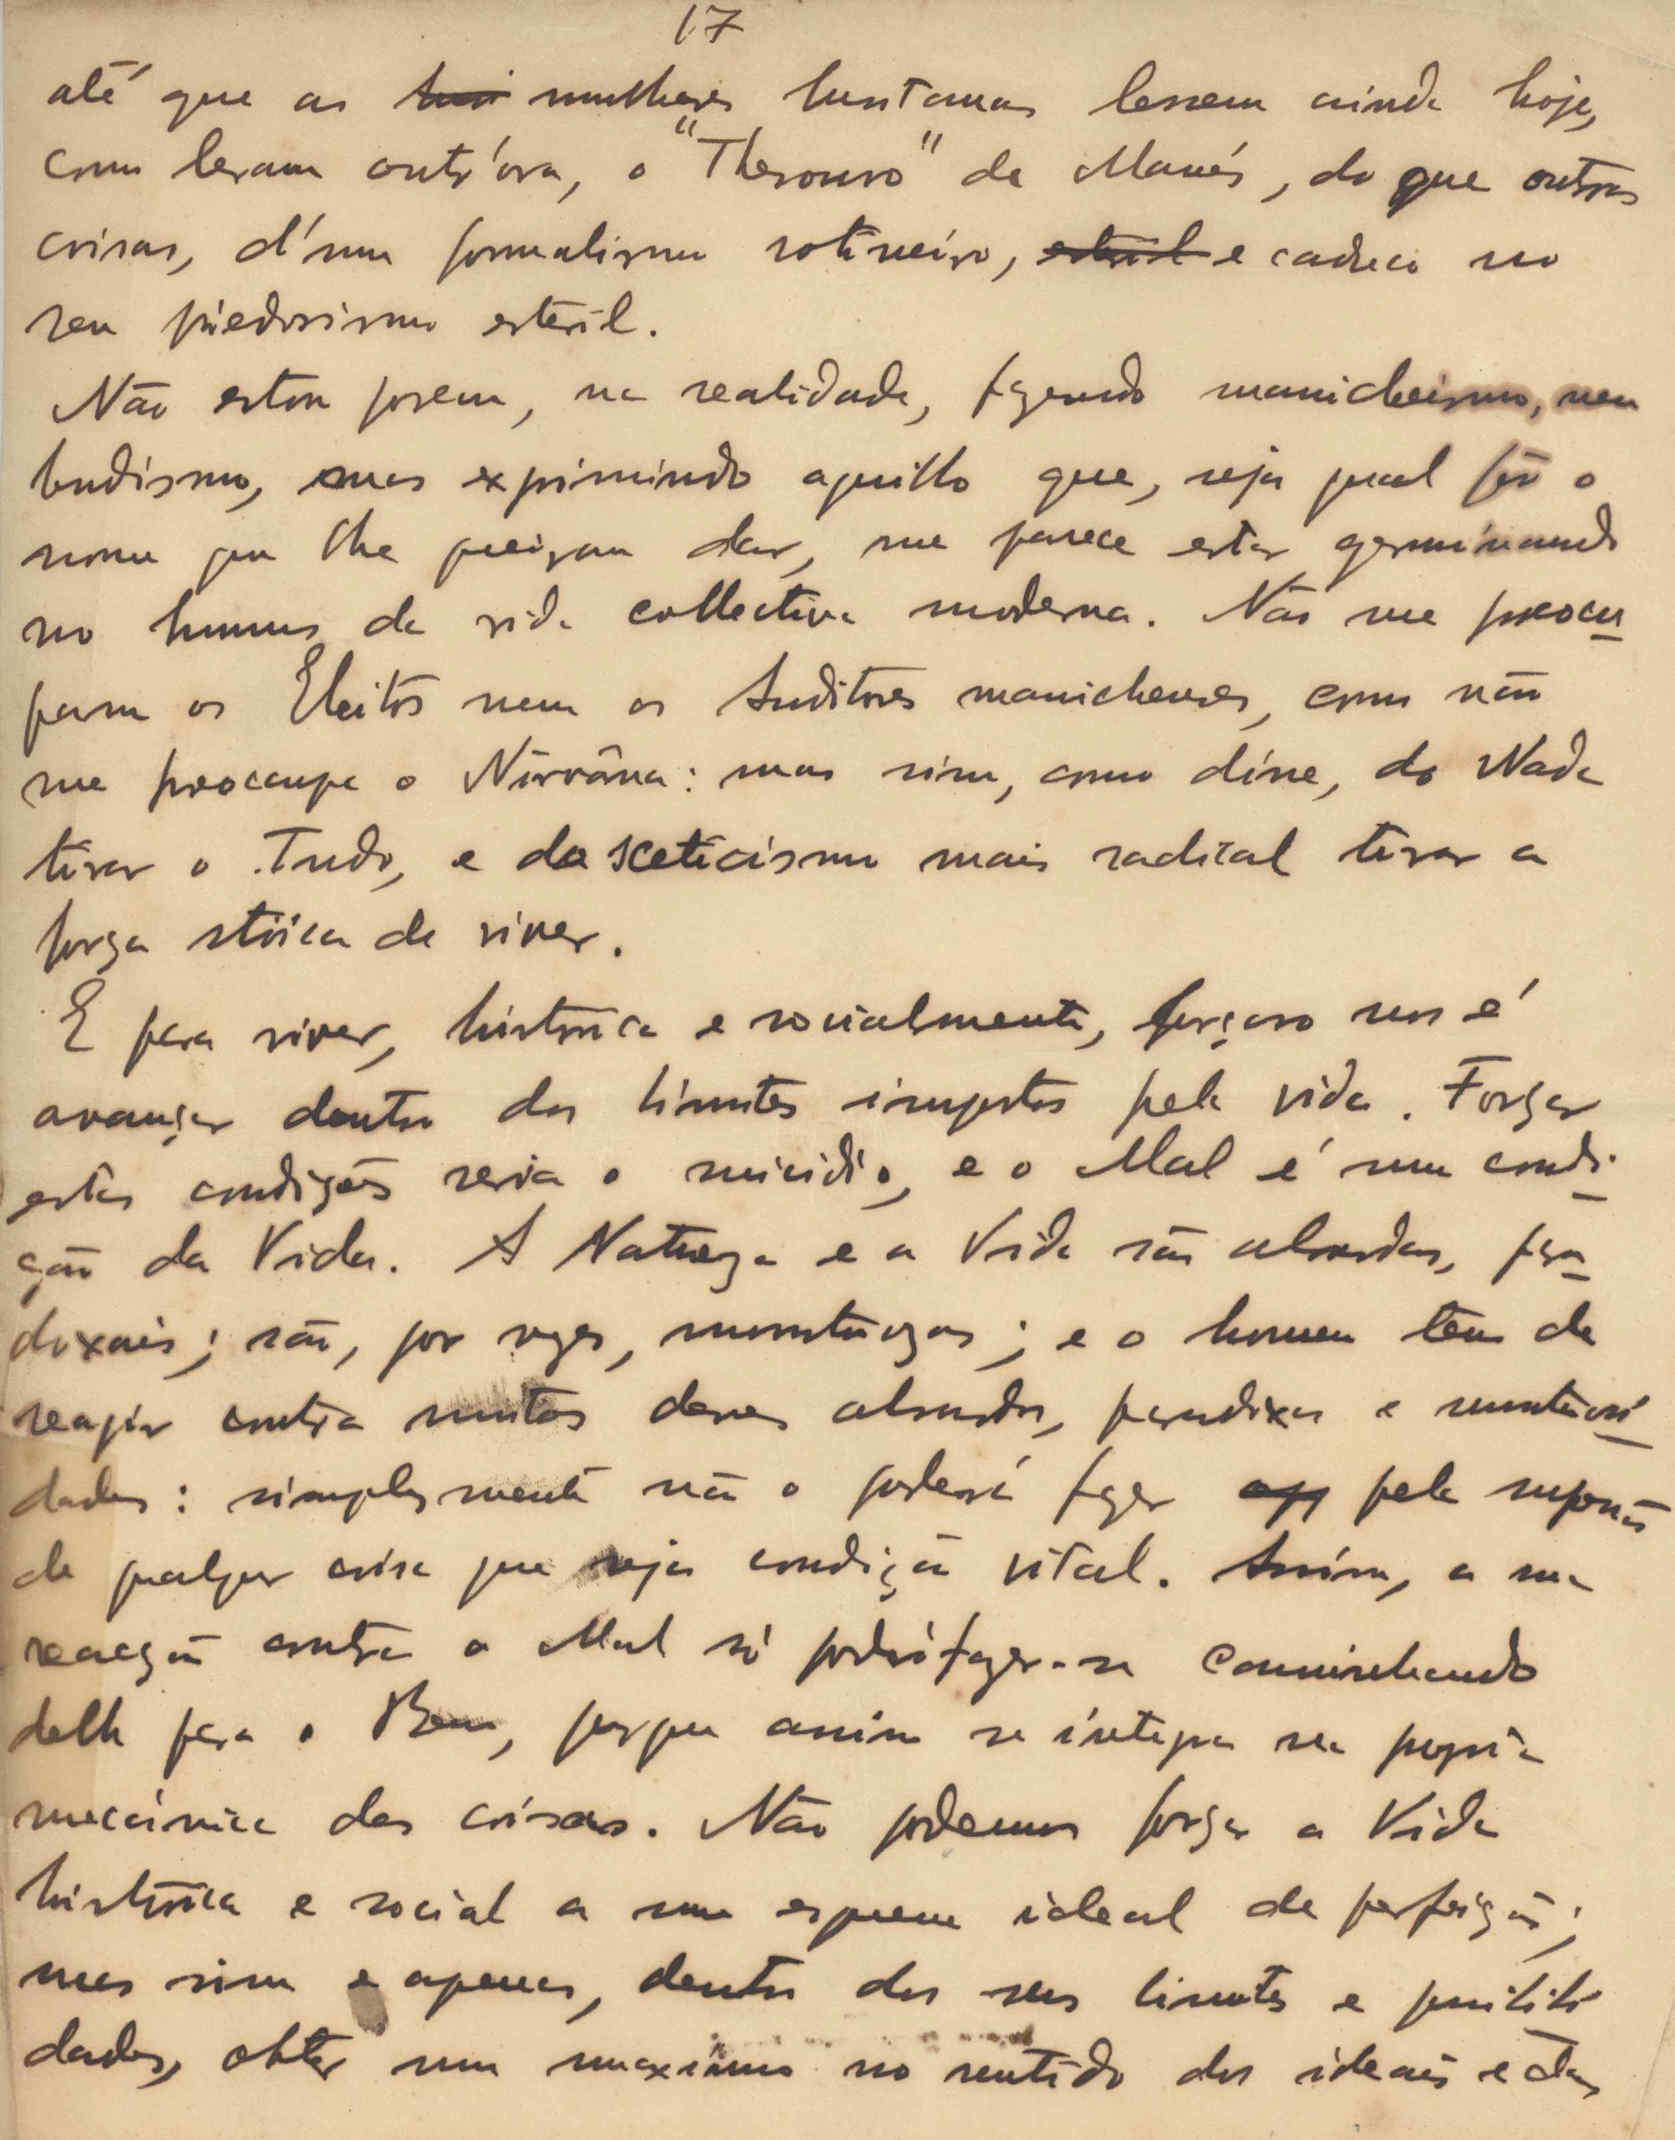 17
até que as mulheres lusitanas lessem ainda hoje,
como leram outr'óra, o "Thesouro" de Manés, do que outras
coisas, d'um formalismo rotineiro, e caduco no
seu piedosismo esteril.
Não estou porem, na realidade, fazendo manicheismo, nem
budismo, mas exprimindo aquillo que, seja qual fôr o
nome que lhe queiram dar, me parece estar germinando
no humus da vida collectiva moderna. Não me preocu-
pam os Eleitos nem os Auditores manicheus, como não
me preocupa o Nirvâna: mas sim, como disse, do Nada
tirar o Tudo, e do sceticismo mais radical tirar a
força stóica de viver.
E para viver, historica e socialmente, forçoso nos é
avançar dentro dos limites impostos pela vida. Forçar
estas condições seria o suicidio, e o Mal é uma condi-
ção da Vida. A Natureza e a Vida são absurdas, para-
doxais; são, por vezes, monstruozas; e o homem tem de
reagir contra muitos desses absurdos, paradoxos e monstruosi-
dades: simplesmente não o poderá fazer pela supressão
de qualquer coisa que seja condição vital. Assim, a sua
reacção contra o Mal só poderá fazer-se caminhando
delle para o Bem, porque assim se integra na propria
mecánica das coisas. Não podemos forçar a Vida
histórica e social a um esquema ideal de perfeição;
mas sim e apenas, dentro dos seus limites e possibili-
dades, obter um maximo no sentido dos ideais e das